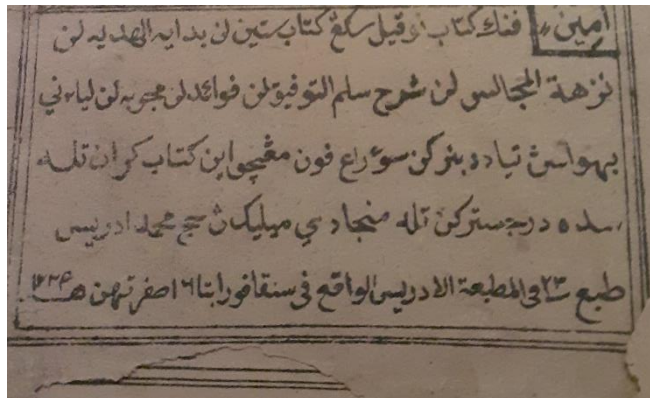 امين، فنك كتاب نوقيل سكغ كتاب ستين لن بدايه الهديه لن
نزهة المجالس لن شرح سلم التوفيق لن فوائد لن مجربه لن لياءني
بهواسڽ تياد دبنركن سوءراغ فون مڠچو اين كتاب كران تله
سده درجستركن تله منجادي ميليكڽ حج محمد ادريس
طبع في المطبعة الادريس الواقع في سنقافورا ١٦ صفر تهن هـ